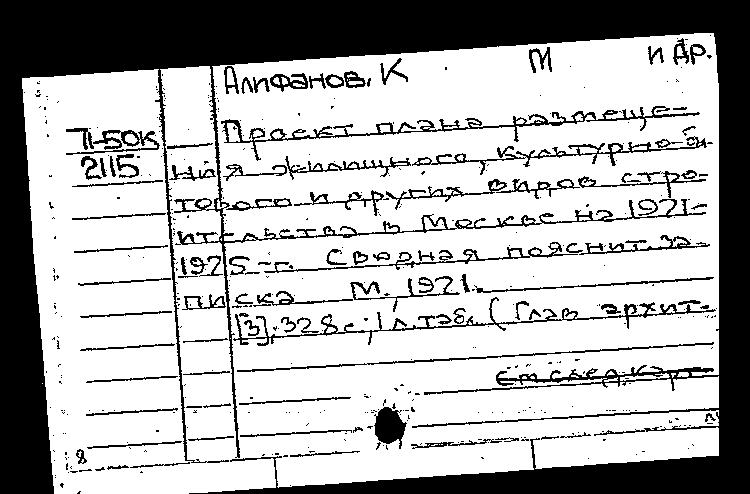 Алифанов, К М и др.
П-50К
2115
Проект плана размеще-
ния жилищного, культурно-бы-
тового и других видов стро-
ительства в Москве на 1921-
1925-г. Сводная пояснит. за-
писка М., 1921.
[3]; 328 с; 1 л. табл. (Глав архит-
См след. карт
8